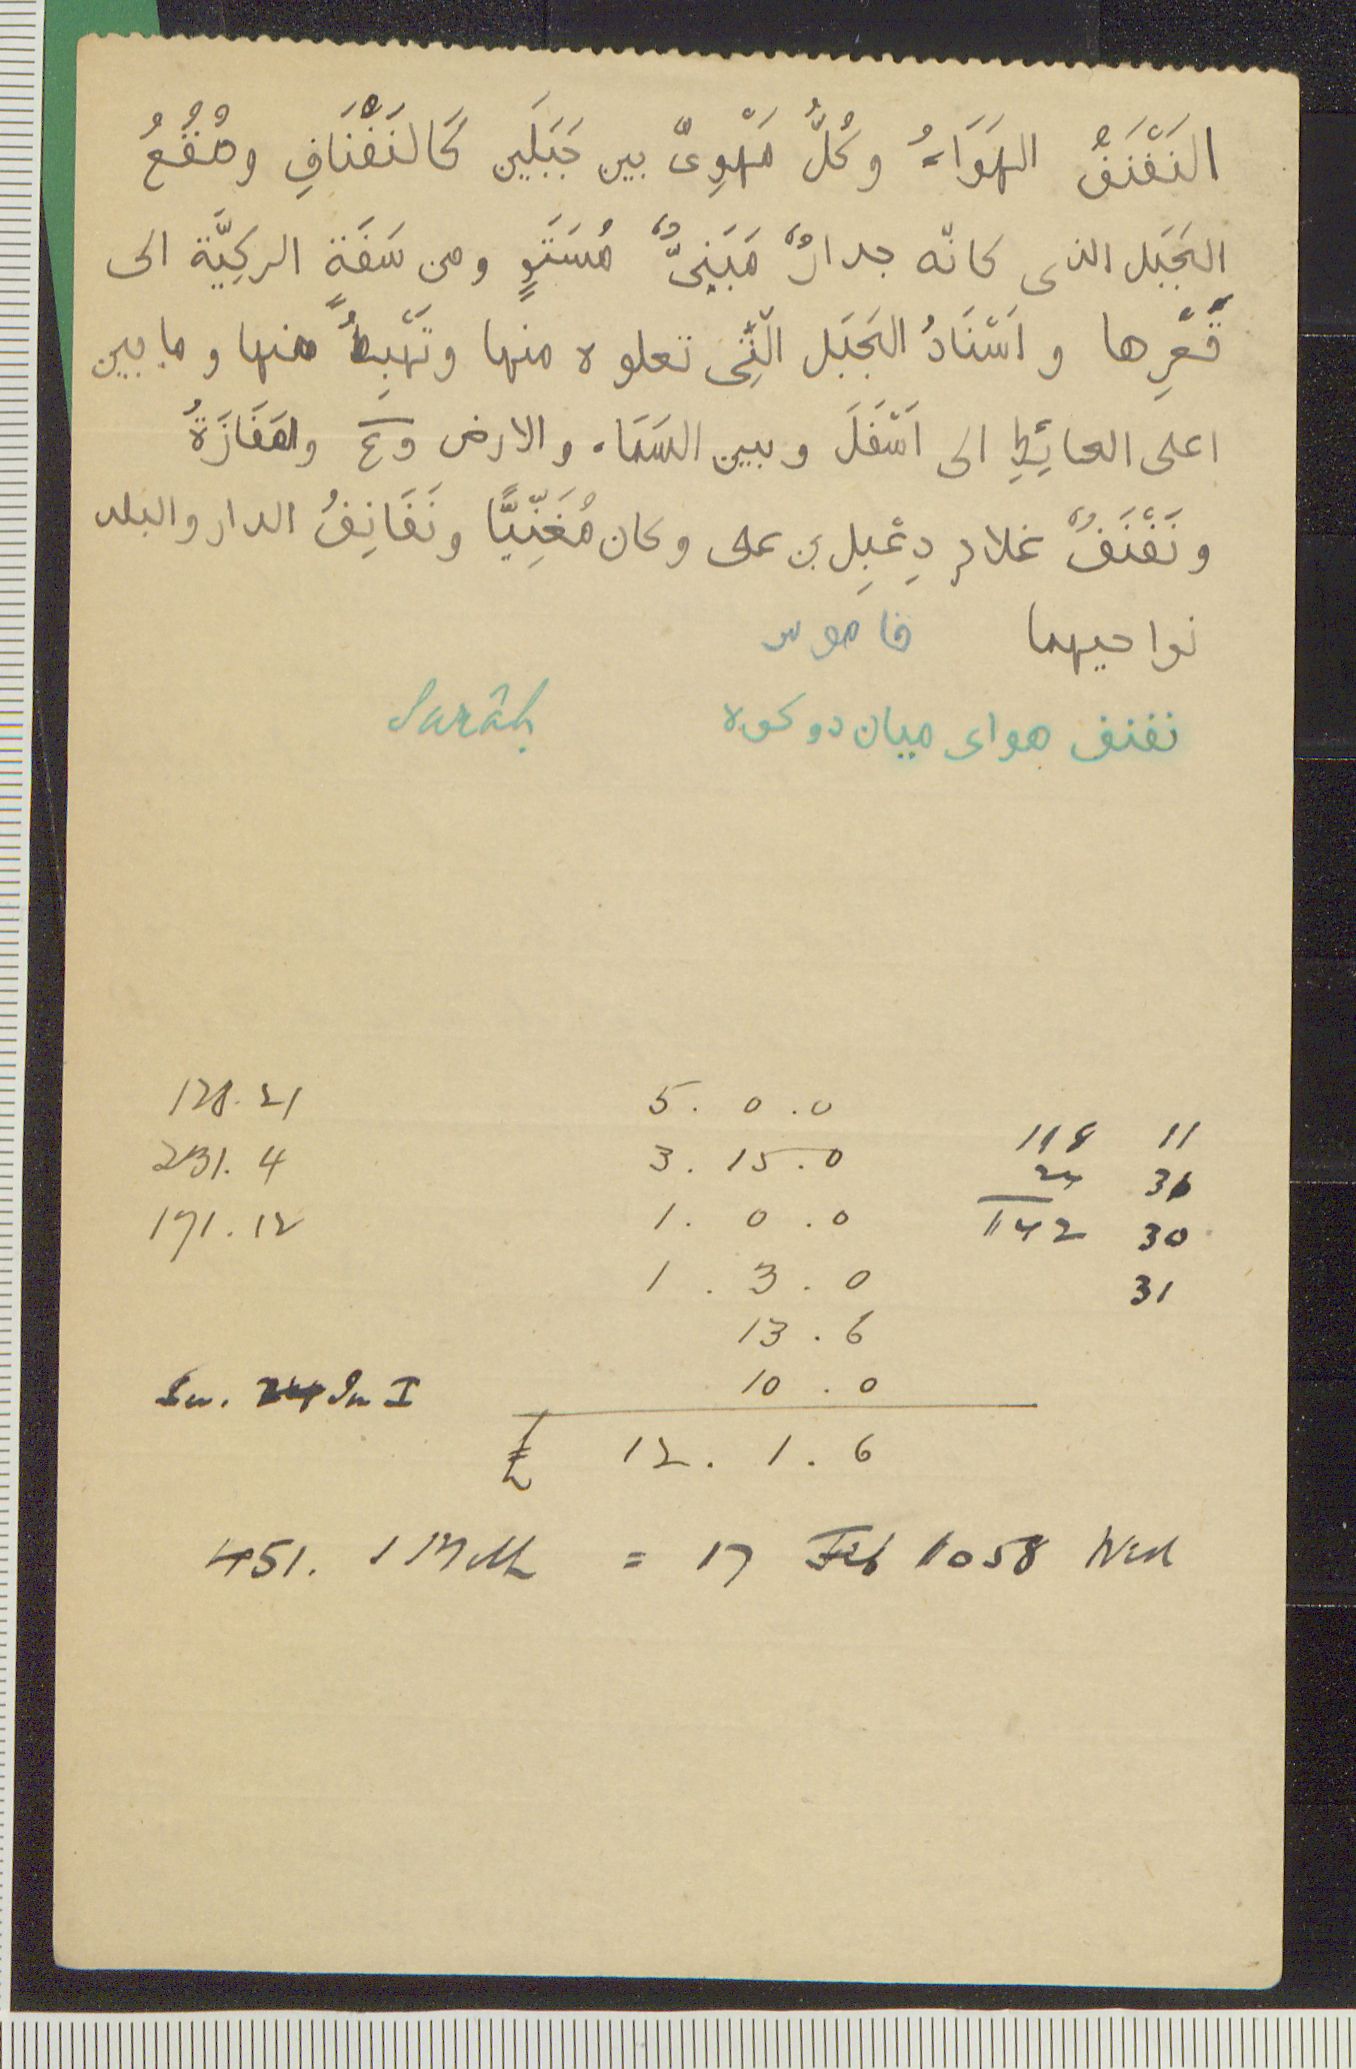 النَفْنَفُ الهَوَاءُ وكُلُّ مَهْوِىً بين جَبَلَين كَالنَفْنَافِ وصُقْعُ
الجَبَل الذى كانّه جدارٌ مَبَنِىٌّ مُسَتَوٍ ومن سَفَةِ الركِيَّة الى
قَعْرِها واَسْنَادُ الجَبَل الَّتِى تعلوه منها وتَهْبِطُ منها وما بين
اعلى الحائِطِ الى اَسْفَلَ وبين السَمَاء والارض وع والمَفَازَةُ
ونَفْنَفٌ غلام دِعْبِل بن على وكان مُغَنِّيًّا ونَفَانِفُ الدار والبلد
نواحيهما قاموس
نفنف هواى ميان دو كوه Surâh
128.21 5.0.0
231.4 3.15.0 118 11
171.12 1.0.0 24 31
1.3.0 142 30
13.6 31
In. In I 10.0
£ 12.1.6
451. 1 = 17 Feb 1058 Wed